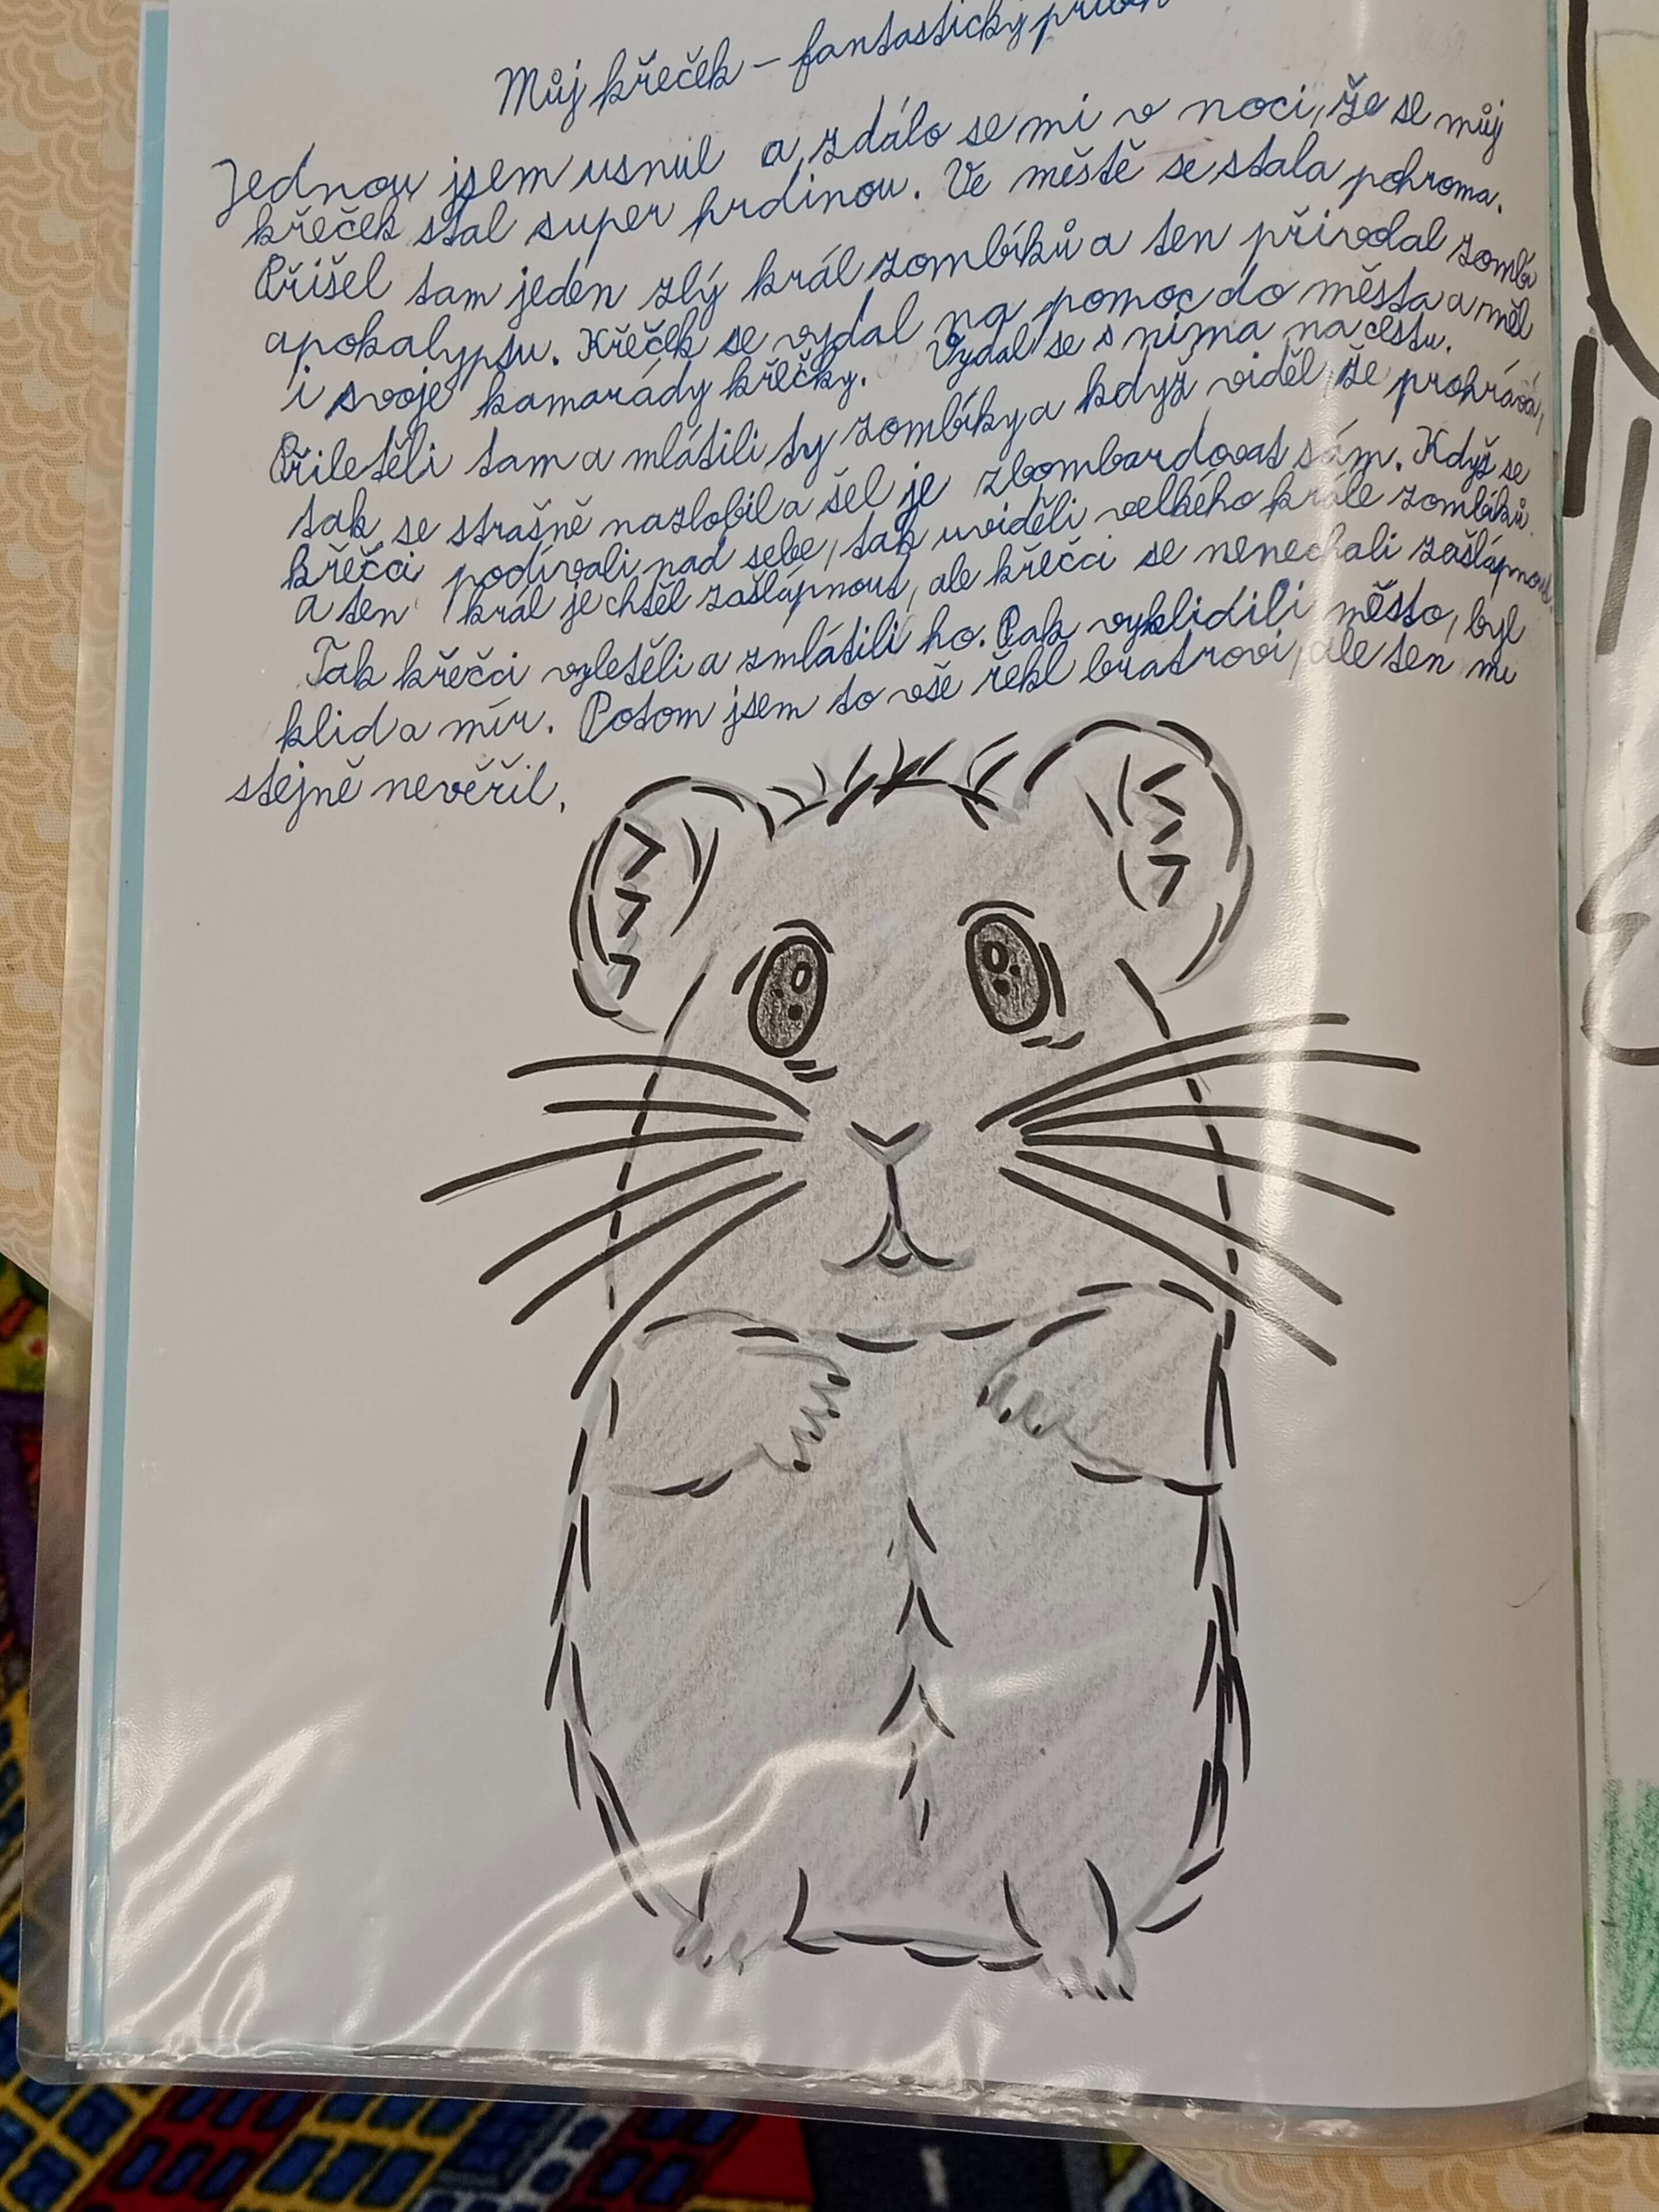 Můj křeček – fantastický příběh
Jednou jsem usnul a zdálo se mi v noci, že se můj
křeček stal super hrdinou. Ve městě se stala pohroma.
Přišel tam jeden zlý král zombíků a ten přivolal zombi
apokalypsu. Křeček se vydal na pomoc do města a měl
i svoje kamarády křečky. Vydal se s nima na cestu.
Přiletěli tam a mlátili ty zombíky a když viděl, že prohrává,
tak se strašně nazlobil a šel je zbombardovat sám. Když se
křečci podívali nad sebe, tak uviděli velkého krále zombíků.
a ten král je chtěl zašlápnout, ale křečci se nenechali zašlápnout.
Tak křečci vyletěli a zmlátili ho. Pak vyklidili město, byl
klid a mír. Potom jsem to vše řekl bratrovi, ale ten mi
stejně nevěřil.